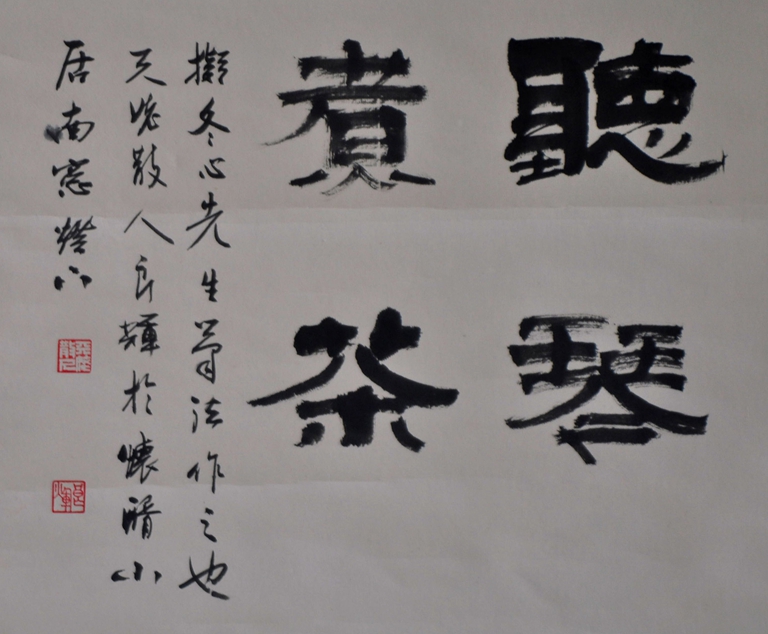 聽琴
煮茶
擬冬心先生筆法作之也
天散人良輝於懷小
居南窓燈下